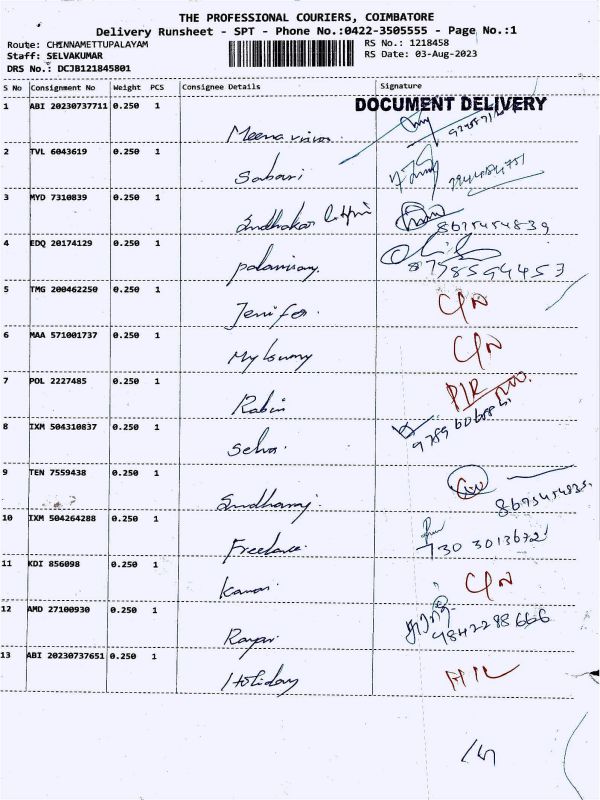 THE PROFESSIONAL COURIERS, COIMBATORE
Delivery Runsheet - SPT - Phone No.:0422-3505555 - Page No.:1
Route: CHINNAMETTUPALAYAM
RS No.: 1218458
Staff: SELVAKUMAR
RS Date: 03-Aug-2023
DRS No.: DCJB121845801
S No Consignment No Weight PCS Consignee Details Signature
DOCUMENT DELIVERY
1 ABI 20230737711 0.250 1
Meena
2 TVL 6043619 0.250 1
Sabari
3 MYD 7310839 0.250 1
Sudhakar
8675454839
4 EDQ 20174129 0.250 1
Palanisamy
8778594453
5 TMG 200462250 0.250 1
Jenifer. C/N
6 MAA 571001737 0.250 1
C/N
7 POL 2227485 0.250 1
Rabin
8 IXM 504310837 0.250 1
Selva.
9 TEN 7559438 0.250 1
10 IXM 504264288 0.250 1
Freelance.
11 KDI 856098 0.250 1
C/N
12 AMD 27100930 0.250 1
9842288666
13 ABI 20230737651 0.250 1
Holiday